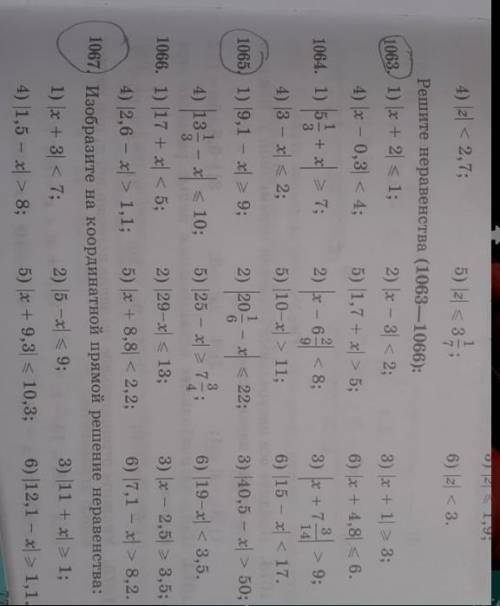 |z| ≤ 1,9;
4) |z| < 2,7; 5) |z| ≤ 3 1/7; 6) |z| < 3.
Решите неравенства (1063—1066):
1063. 1) |x + 2| ≤ 1; 2) |x − 3| < 2; 3) |x + 1| ≥ 3;
4) |x − 0,3| < 4; 5) |1,7 + x| > 5; 6) |x + 4,8| ≤ 6.
1064. 1) |5 1/3 + x| ≥ 7; 2) |x − 6 2/9| < 8; 3) |x + 7 3/14| > 9;
4) |3 − x| ≤ 2; 5) |10−x| > 11; 6) |15 − x| < 17.
1065. 1) |9,1 − x| ≥ 9; 2) |20 1/6 − x| ≤ 22; 3) |40,5 − x| > 50;
4) |13 1/3 − x| ≤ 10; 5) |25 − x| ≥ 7 3/4; 6) |19−x| < 3,5.
1066. 1) |17 + x| < 5; 2) |29−x| ≤ 13; 3) |x − 2,5| ≥ 3,5;
4) |2,6 − x| > 1,1; 5) |x + 8,8| < 2,2; 6) |7,1 − x| > 8,2.
1067. Изобразите на координатной прямой решение неравенства:
1) |x + 3| < 7; 2) |5 −x| ≤ 9; 3) |11 + x| ≥ 1;
4) |1,5 − x| > 8; 5) |x + 9,3| ≤ 10,3; 6) |12,1 − x| ≥ 1,1.